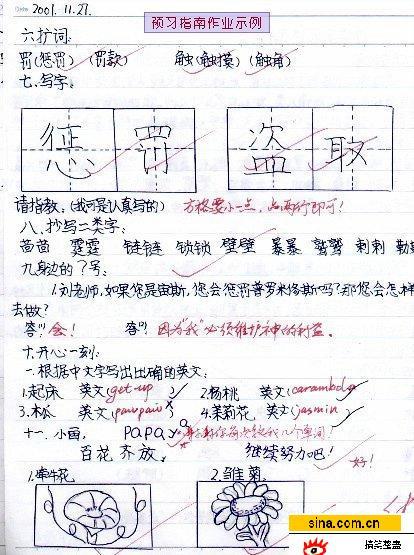 2001.11.27.
预习指南作业示例
六.扩词:
罚(惩罚)(罚款) 触(触摸)(触角)
七.写字:
惩 罚 盗 取
请指教:(我可是认真写的) 方格要小一点,占两行即可!
八.抄写二类字:
苗苗 霆霆 链链 锁锁 壁壁 暴暴 鹫鹫 刺刺
九.身边的?号:
1.刘老师,如果您是宙斯,您会惩罚普罗米修斯吗?那您会怎样
去做?
答"会! 答"因为"我"必须维护神的利益。
十.开心一刻:
一.根据中文字写出正确的英文:
1.起床 英文(get up) 2.杨桃 英文(carambola
3.木瓜 英文(pawpaw) 4.茉莉花 英文(jasmin)
十一.小画, papaya
百花齐放。 继续努力吧! 好!
1.牵牛花 2.雏菊.
sina.com.cn
搞笑整蛊